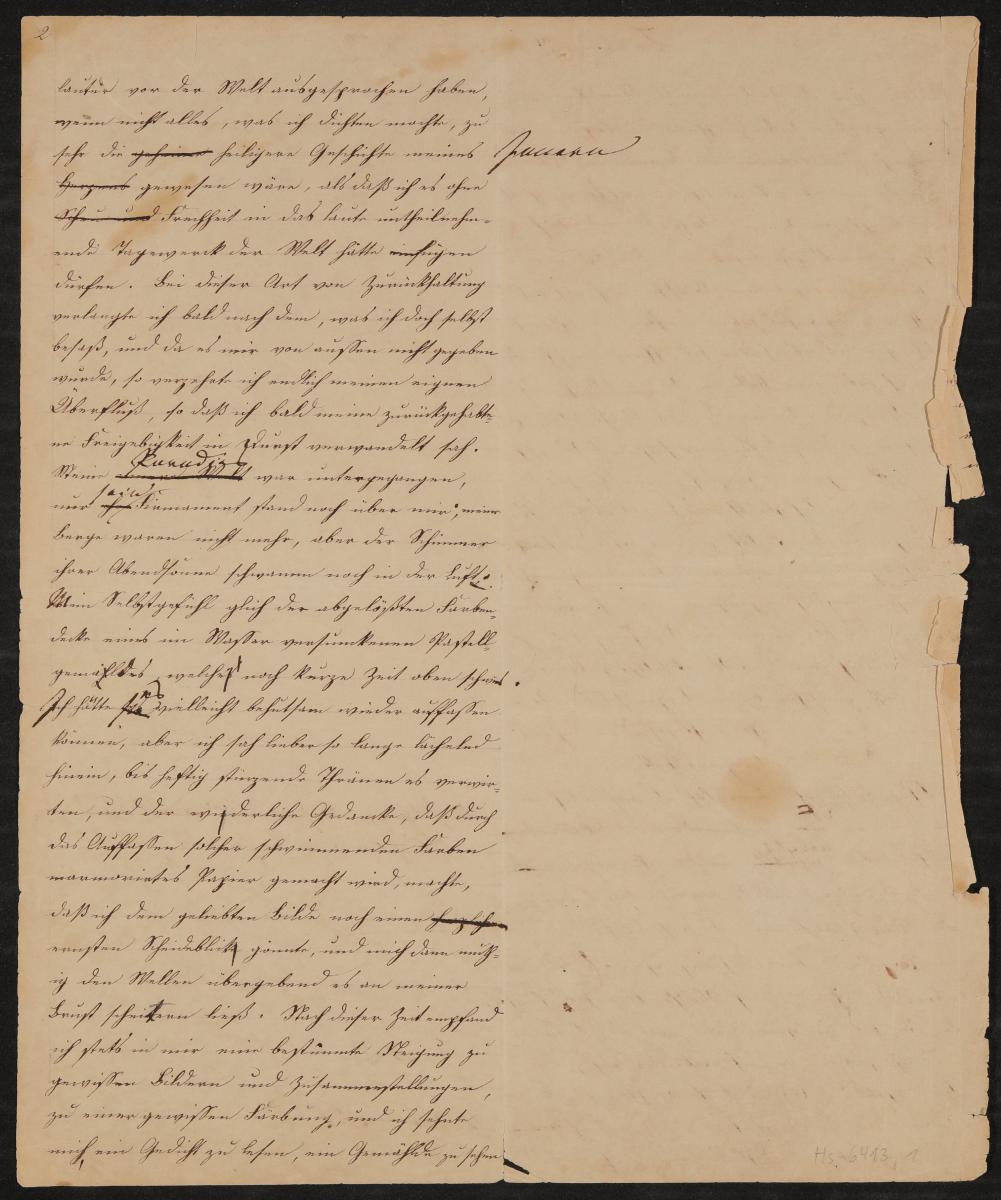 2
lauter vor der Welt ausgesprochen haben,
wenn nicht alles, was ich dichten mochte, zu
sehr die geheime heiligere Geschichte meines Inneren
Herzens gewesen wäre, als daß ich es ohne
Scheu und Frechheit in das laute untheilnehm-
ende Tagewerck der Welt hätte einfügen
dürfen. Bei dieser Art von Zurückhaltung
verlangte ich bald nach dem, was ich doch selbst
besaß, und da es mir von aussen nicht gegeben
wurde, so verzehrte ich endlich meinen eignen
Überfluß, so daß ich bald meine zurückgehalte-
ne Freigebigkeit in Durst verwandelt sah.
Paradies
Meine innere Welt war untergegangen,
sein
nur Firmament stand noch über mir, meine
Berge waren nicht mehr, aber der Schimmer
ihrer Abendsonne schwamm noch in der Luft.
Mein Selbstgefühl glich der abgelößten Farben-
decke eines im Wasser versunckenen Pastell-
gemähldes, welches noch kurze Zeit oben schwimmt.
Ich hätte es vielleicht behutsam wieder auffassen
können, aber ich sah lieber so lange lächelnd
hinein, bis heftig stürzende Thränen es verwirr-
ten, und der wiederliche Gedancke, daß durch
das Auffassen solcher schwimmenden Farben
marmorirtes Papier gemacht wird, machte,
daß ich dem geliebten Bilde noch einen
ernsten Scheideblick gönnte, und mich dann muth-
ig den Wellen übergebend es an meiner
Brust scheitern ließ. Nach dieser Zeit empfand
ich stets in mir eine bestimmte Neigung zu
gewissen Bildern und Zusammenstellungen,
zu einer gewissen Färbung, und ich sehnte
mich, ein Gedicht zu lesen, ein Gemählde zu sehen
Hs-6413, 1